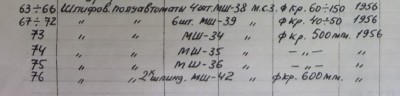 63÷66 Шлифов. полуавтоматы 4шт. МШ-38 м.с.з. ф кр. 60÷150 1956
67÷72 " " 6шт. МШ-39 " ф кр. 40÷50 1956
73 " " МШ-34 " ф кр. 500 мм. 1956
74 " " МШ-35 " —„— „
75 " " МШ-36 " —„— „
76 " " 2х шпинд. МШ-42 " ф кр. 600 мм. "